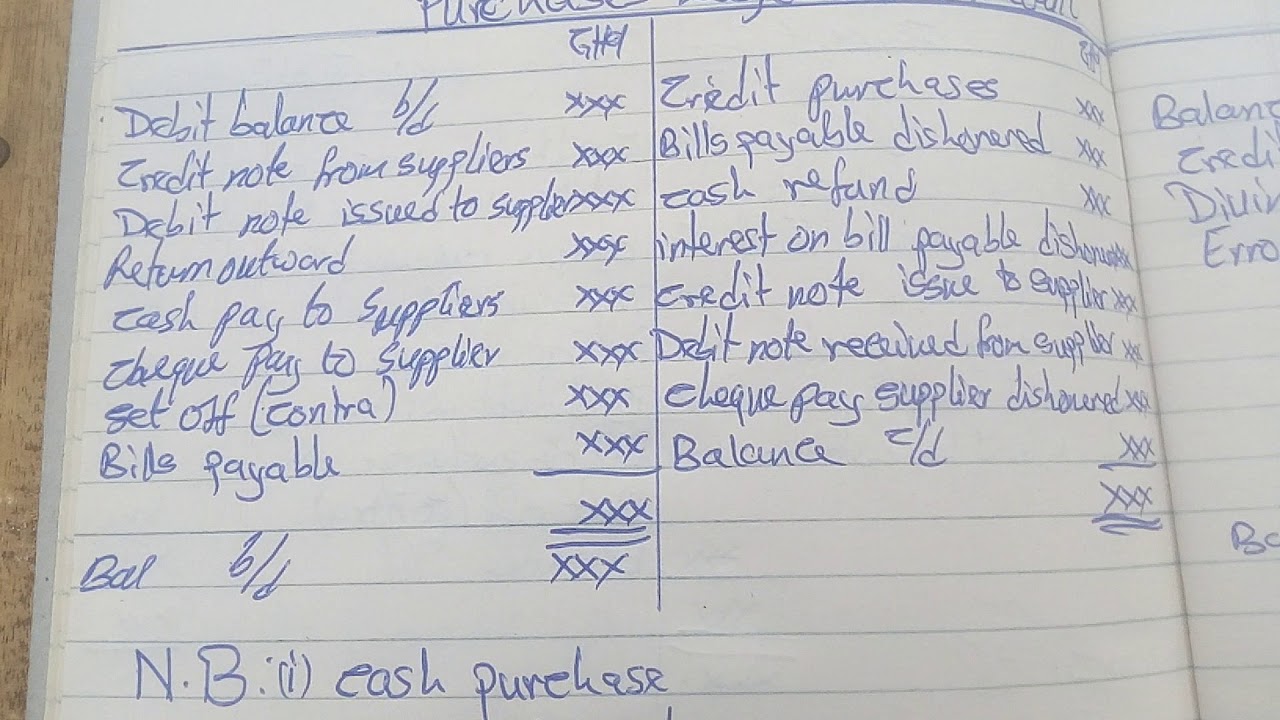 Purchase
GH¢ GH¢
Debit balance b/d xxx Credit purchases xxx
Credit note from suppliers xxx Bills payable dishonered xxx
Debit note issued to supplier xxx cash refund xxx
Return outward xxx interest on bill payable dishonered xxx
cash pay to suppliers xxx credit note issue to supplier xxx
cheque pay to supplier xxx Debit note received from supplier xx
set off (contra) xxx cheque pay supplier dishoured xxx
Bills payable xxx Balance c/d xxx
xxx xxx
Bal b/d xxx
N.B:(i) cash purchase
Balan
credi
Divin
Erro